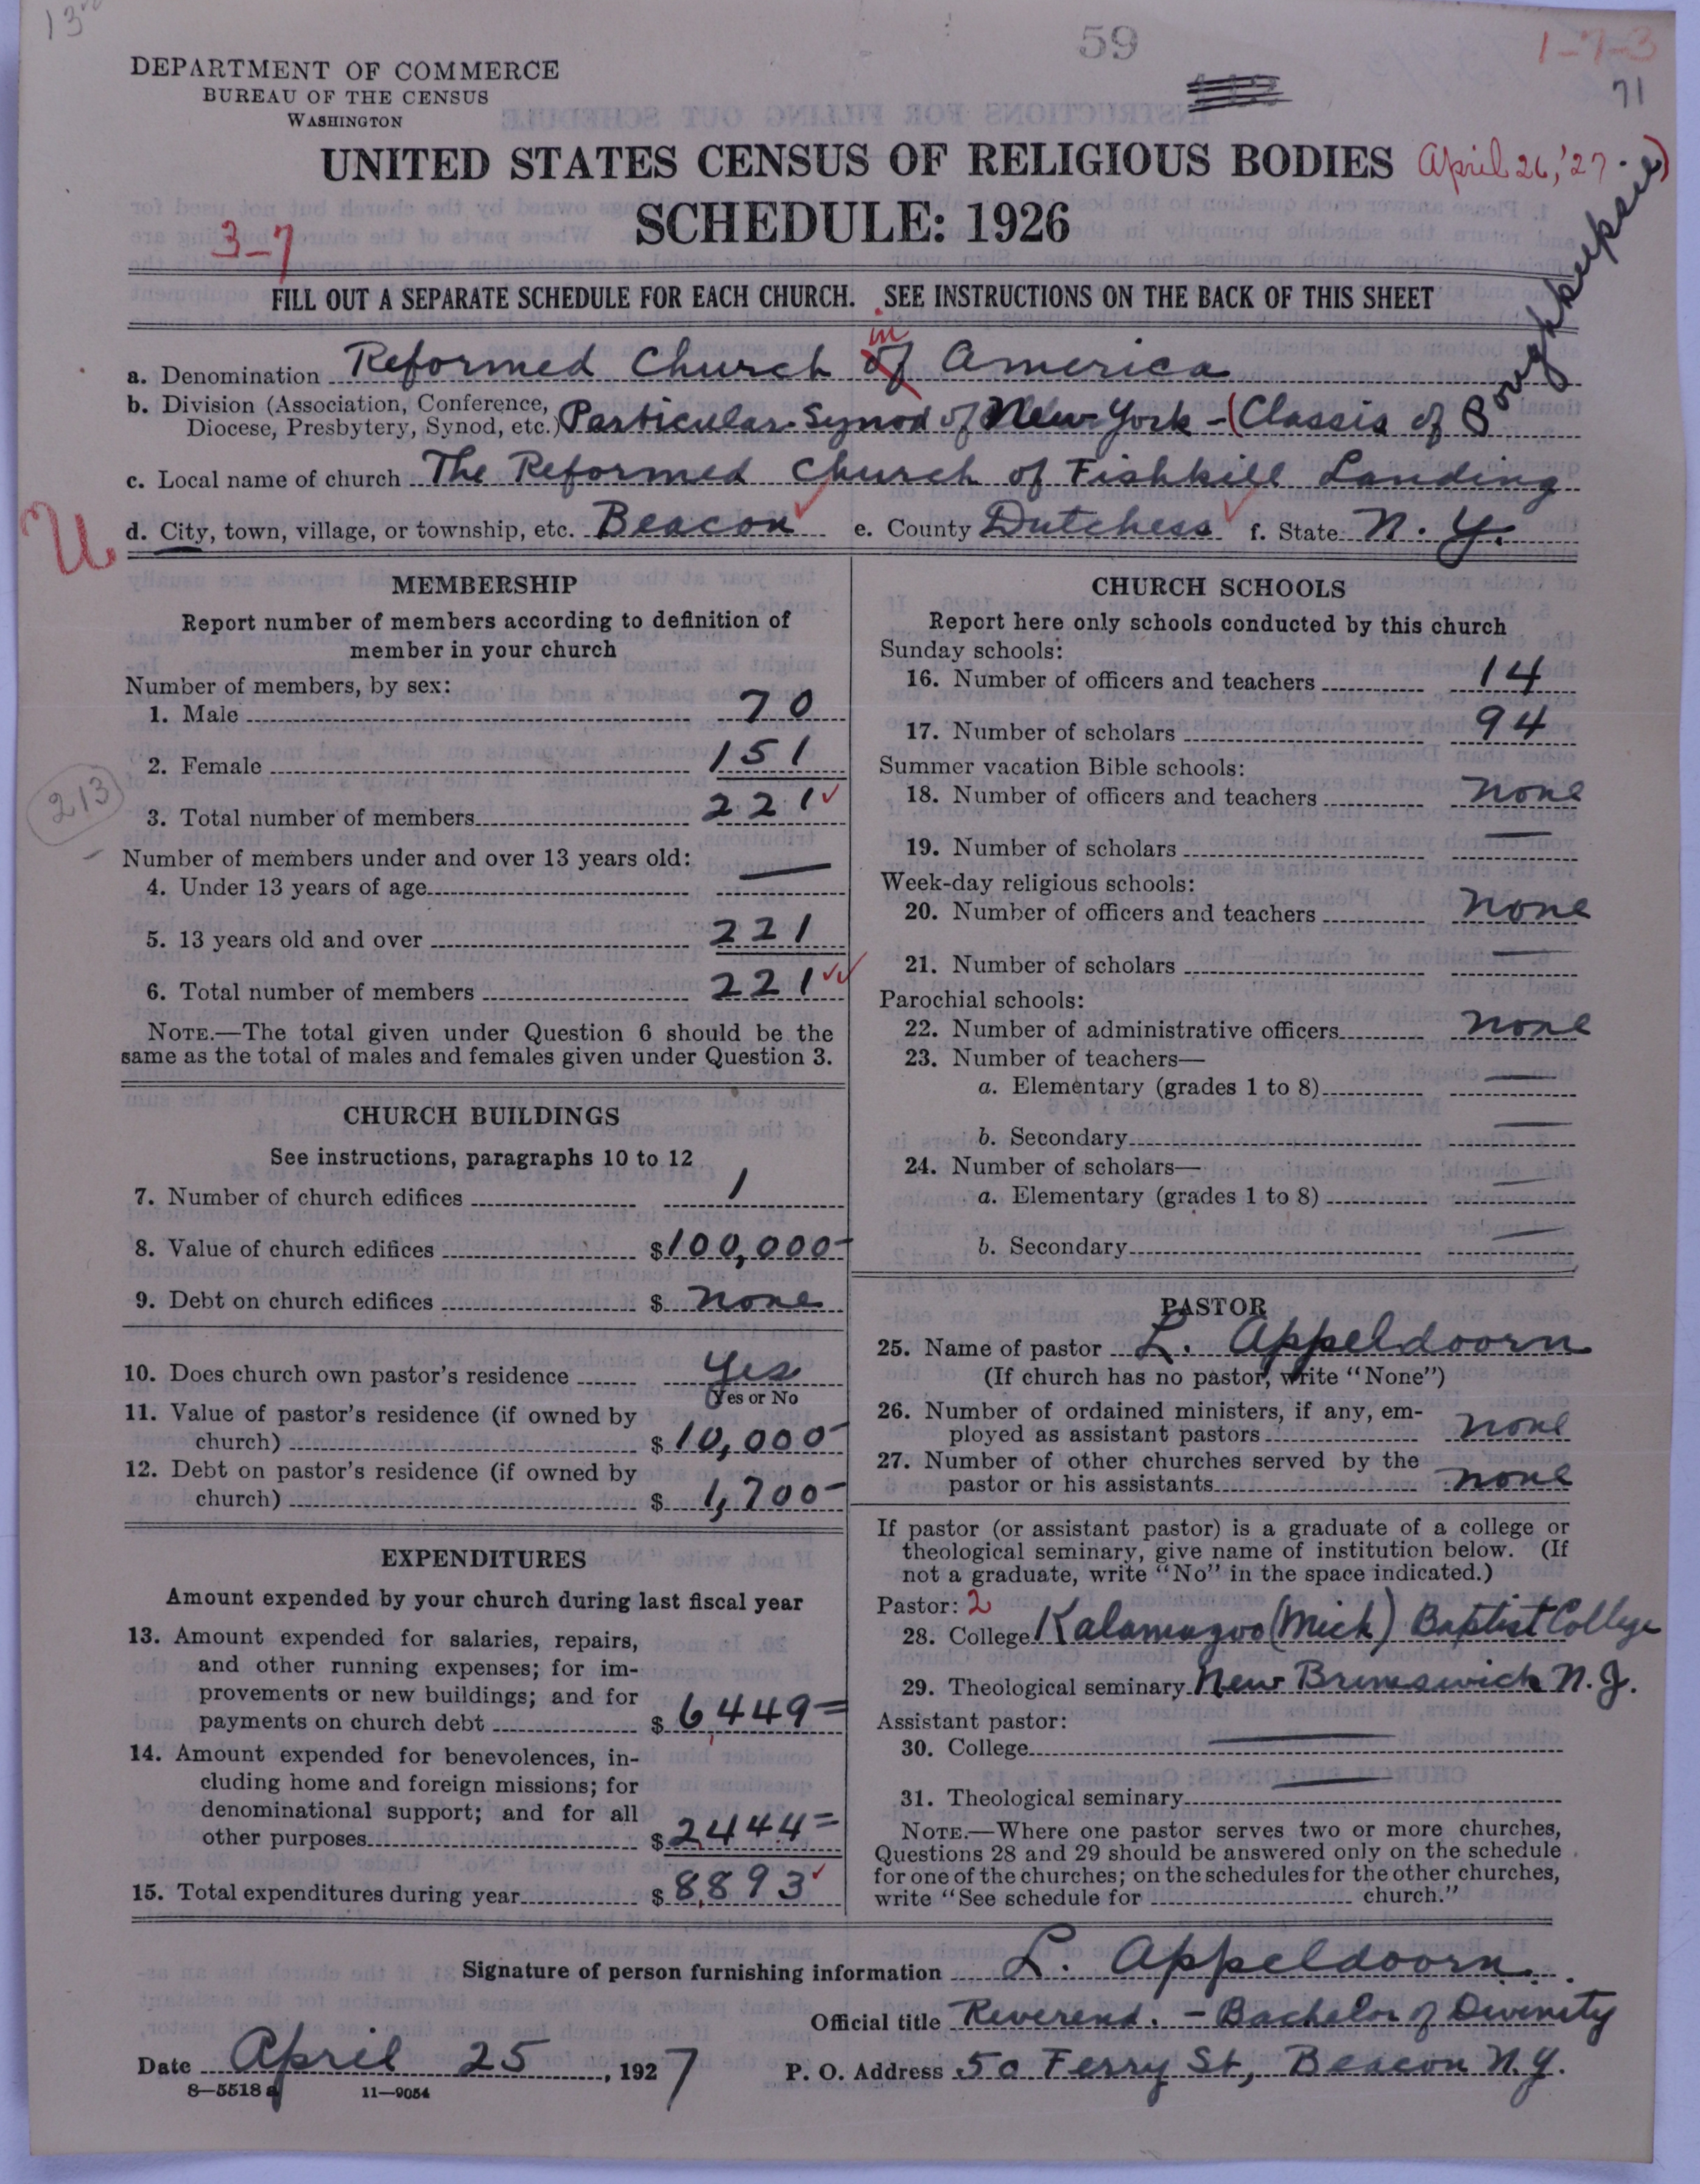 13rd
59
1-7-3
71
DEPARTMENT OF COMMERCE
BUREAU OF THE CENSUS
WASHINGTON
UNITED STATES CENSUS OF RELIGIOUS BODIES April 26, '27.
SCHEDULE: 1926
3-7
FILL OUT A SEPARATE SCHEDULE FOR EACH CHURCH. SEE INSTRUCTIONS ON THE BACK OF THIS SHEET
a. Denomination Reformed Church of in America
b. Division (Association, Conference, Diocese, Presbytery, Synod, etc.) Particular Synod of New York - (Classis of Poughkeepsie)
c. Local name of church The Reformed Church of Fishkill Landing
U
d. City, town, village, or township, etc. Beacon e. County Dutchess f. State N. Y.
MEMBERSHIP
Report number of members according to definition of
member in your church
Number of members, by sex:
1. Male 70
2. Female 151
213
3. Total number of members 221
Number of members under and over 13 years old:
4. Under 13 years of age —
5. 13 years old and over 221
6. Total number of members 221
NOTE.—The total given under Question 6 should be the
same as the total of males and females given under Question 3.
CHURCH BUILDINGS
See instructions, paragraphs 10 to 12
7. Number of church edifices 1
8. Value of church edifices $100,000-
9. Debt on church edifices $ none
10. Does church own pastor's residence Yes
(Yes or No
11. Value of pastor's residence (if owned by
church) $10,000-
12. Debt on pastor's residence (if owned by
church) $ 1,700-
EXPENDITURES
Amount expended by your church during last fiscal year
13. Amount expended for salaries, repairs,
and other running expenses; for im-
provements or new buildings; and for
payments on church debt $ 6,449=
14. Amount expended for benevolences, in-
cluding home and foreign missions; for
denominational support; and for all
other purposes $2,444=
15. Total expenditures during year $8,893
CHURCH SCHOOLS
Report here only schools conducted by this church
Sunday schools:
16. Number of officers and teachers 14
17. Number of scholars 94
Summer vacation Bible schools:
18. Number of officers and teachers none
19. Number of scholars —
Week-day religious schools:
20. Number of officers and teachers none
21. Number of scholars —
Parochial schools:
22. Number of administrative officers none
23. Number of teachers—
a. Elementary (grades 1 to 8) —
b. Secondary —
24. Number of scholars—
a. Elementary (grades 1 to 8) —
b. Secondary —
PASTOR
25. Name of pastor L. Appeldoorn
(If church has no pastor, write "None")
26. Number of ordained ministers, if any, em-
ployed as assistant pastors none
27. Number of other churches served by the
pastor or his assistants none
If pastor (or assistant pastor) is a graduate of a college or
theological seminary, give name of institution below. (If
not a graduate, write "No" in the space indicated.)
Pastor: 2
28. College Kalamazoo (Mich) Baptist College
29. Theological seminary New Brunswick N. J.
Assistant pastor:
30. College —
31. Theological seminary —
NOTE.—Where one pastor serves two or more churches,
Questions 28 and 29 should be answered only on the schedule
for one of the churches; on the schedules for the other churches,
write "See schedule for church."
Signature of person furnishing information L. Appeldoorn.
Official title Reverend. - Bachelor of Divinity
Date April 25, 1927 P. O. Address 50 Ferry St, Beacon N.Y.
8—5518 a 11—9054